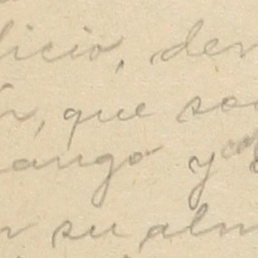 licio, den
r, que so
ango y
n su alm